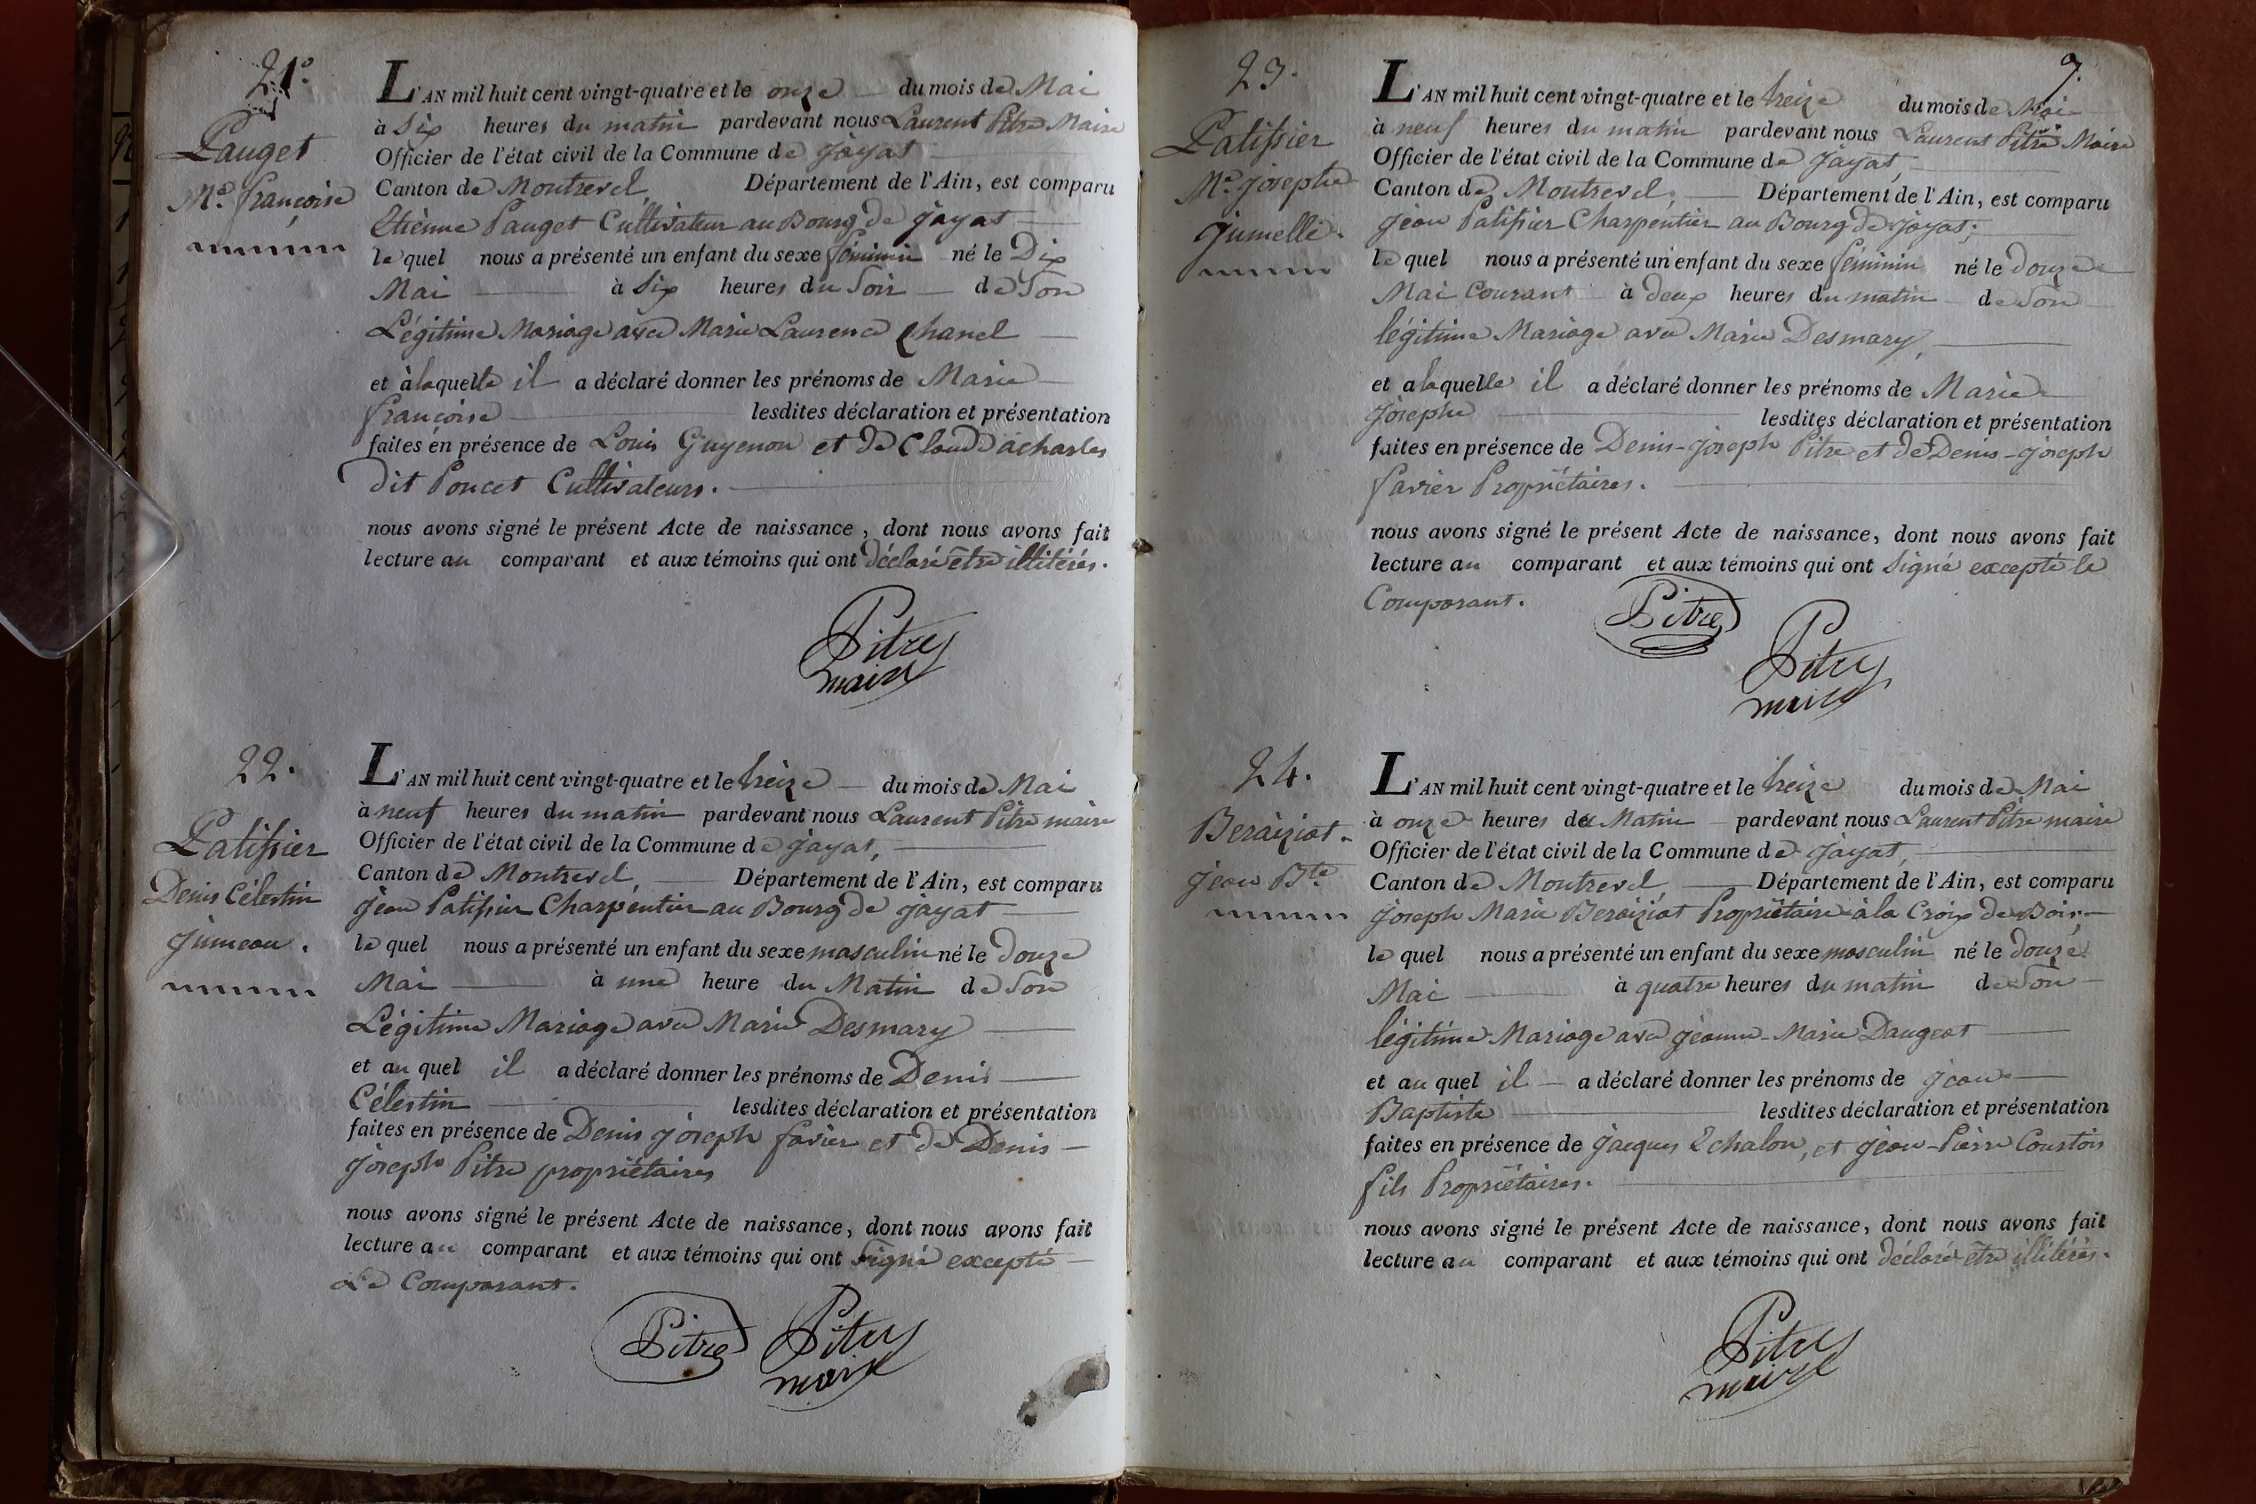 21°.
Pauget
Me. françoise
L'AN mil huit cent vingt-quatre et le onze du mois de Mai
à Six heures du matin pardevant nous Laurent Pitre Maire
Officier de l'état civil de la Commune de jayat
Canton de Montrevel, Département de l'Ain, est comparu
Etienne Pauget Cultivateur au Bourg de jayat
le quel nous a présenté un enfant du sexe féminin né le Dix
Mai à Six heures du Soir de Son
Légitime Mariage avec Marie Laurence Chanel
et à laquelle il a déclaré donner les prénoms de Marie
françoise lesdites déclaration et présentation
faites en présence de Louis Guyenon et de Claude acharles
dit Poncet Cultivateurs.
nous avons signé le présent Acte de naissance, dont nous avons fait
lecture au comparant et aux témoins qui ont déclaré être illitérés.
Pitre
maire
22.
Patissier
Denis Célestin
jumeau.
L'AN mil huit cent vingt-quatre et le treize du mois de Mai
à neuf heures du matin pardevant nous Laurent Pitre maire
Officier de l'état civil de la Commune de jayat,
Canton de Montrevel, Département de l'Ain, est comparu
jean Patissier Charpentier au Bourg de jayat
le quel nous a présenté un enfant du sexe masculin né le Douze
Mai à une heure du Matin de Son
Légitime Mariage avec Marie Desmary
et au quel il a déclaré donner les prénoms de Denis
Célestin lesdites déclaration et présentation
faites en présence de Denis joseph favier et de Denis
joseph Pitre propriétaires
nous avons signé le présent Acte de naissance, dont nous avons fait
lecture au comparant et aux témoins qui ont signé excepté
Le Comparant.
Pitre
Pitre
maire
9.
23.
Patissier
Me. josephe
jumelle.
L'AN mil huit cent vingt-quatre et le treize du mois de Mai
à neuf heures du matin pardevant nous Laurent Pitre Maire
Officier de l'état civil de la Commune de jayat,
Canton de Montrevel, Département de l'Ain, est comparu
jean Patissier Charpentier au Bourg de jayat;
le quel nous a présenté un enfant du sexe féminin né le douze
Mai Courant à deux heures du matin de Son
légitime Mariage avec Marie Desmary,
et a laquelle il a déclaré donner les prénoms de Marie
josephe lesdites déclaration et présentation
faites en présence de Denis-joseph Pitre et de Denis-joseph
favier Propriétaires.
nous avons signé le présent Acte de naissance, dont nous avons fait
lecture au comparant et aux témoins qui ont signé excepté le
Comparant.
Pitre
Pitre
maire
24.
Beraiziat.
jean Bte.
L'AN mil huit cent vingt-quatre et le treize du mois de Mai
à onze heures de Matin pardevant nous Laurent Pitre maire
Officier de l'état civil de la Commune de jayat,
Canton de Montrevel, Département de l'Ain, est comparu
joseph Marie Beraiziat Propriétaire à la Croix de Bois
le quel nous a présenté un enfant du sexe masculin né le douze
Mai à quatre heures du matin de Son
légitime Mariage avec jeanne-Marie Daugeat
et au quel il a déclaré donner les prénoms de jean
Baptiste lesdites déclaration et présentation
faites en présence de jacques Echalon, et jean-Pierre Courtois
fils Propriétaires.
nous avons signé le présent Acte de naissance, dont nous avons fait
lecture au comparant et aux témoins qui ont déclaré être illitérés.
Pitre
maire